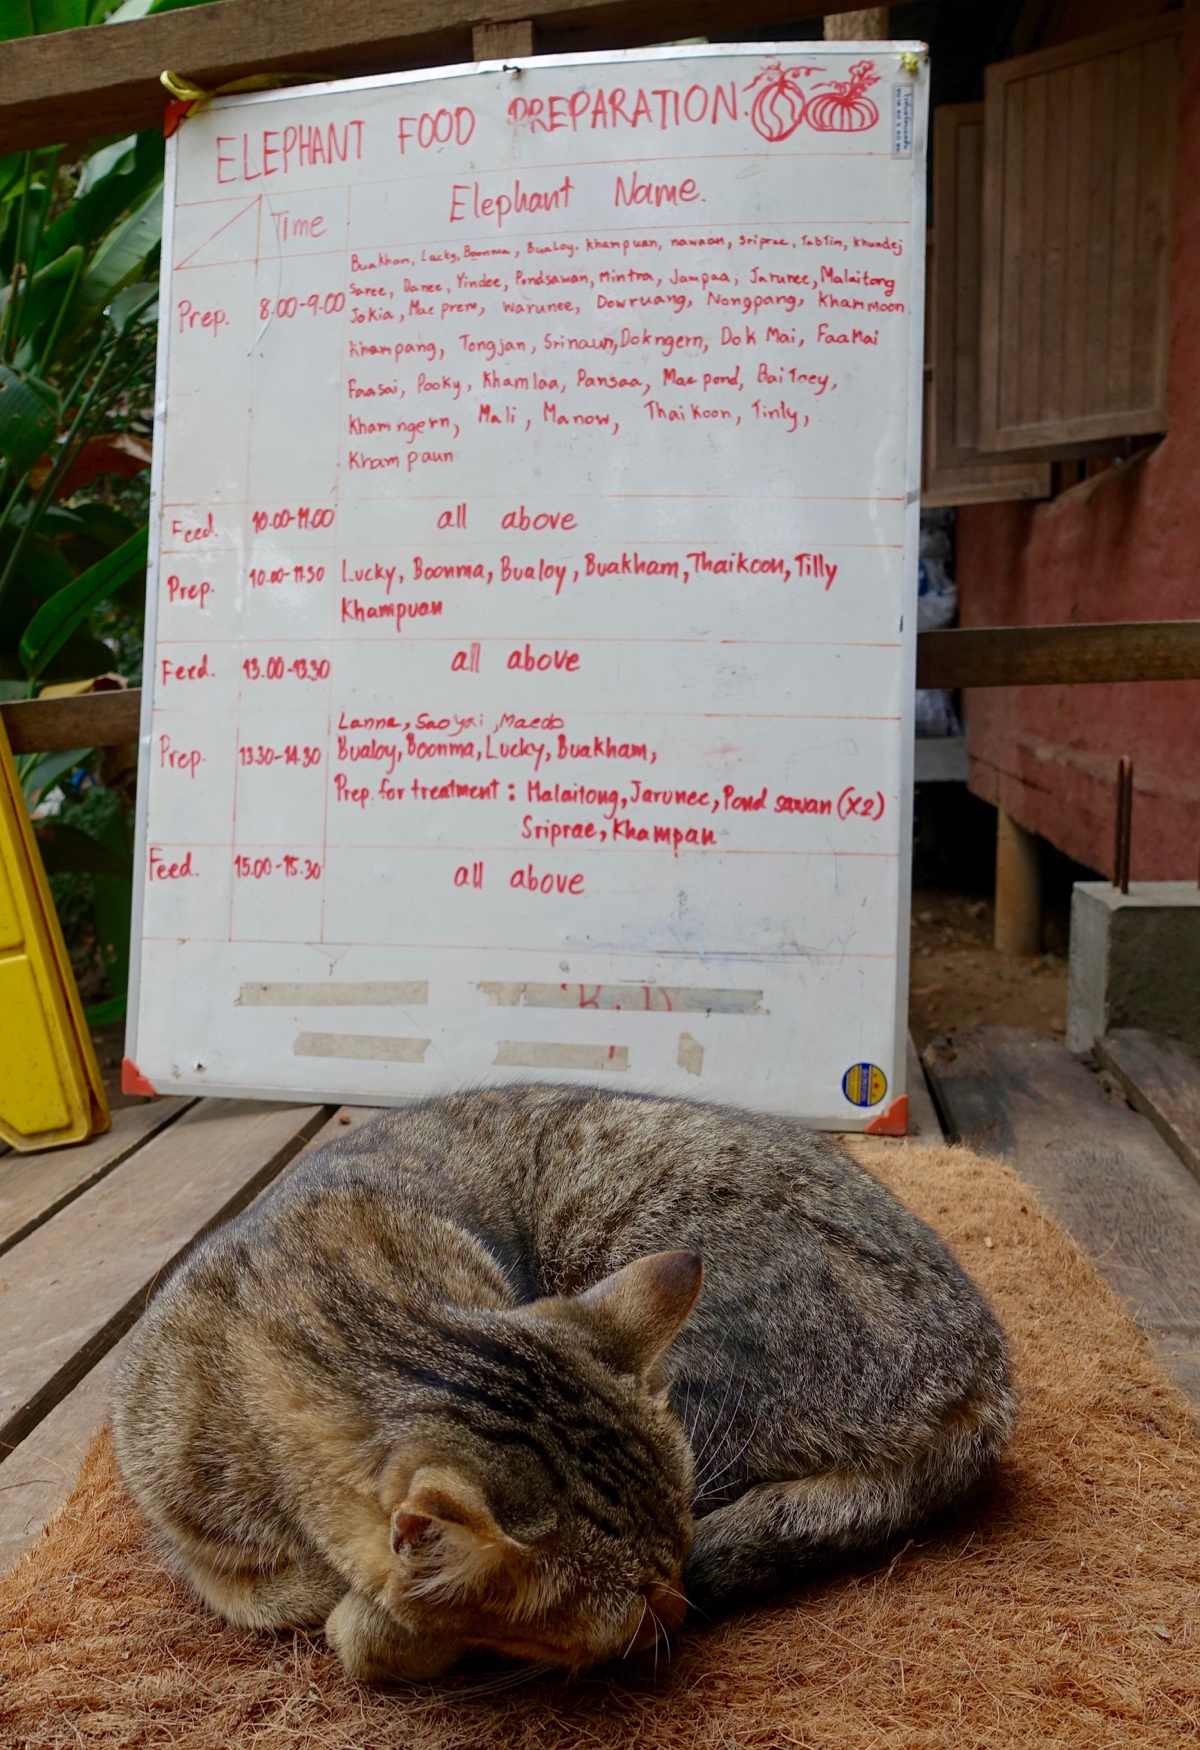 ELEPHANT FOOD PREPARATION.
Time Elephant Name.
Buakham, Lucky, Boonma, Bualoy, Khampuan, nawaan, Sriprae, Tabtim, Khundej
Saree, Danee, Yindee, Pondsawan, Mintra, Jampaa, Jarunee, Malaitong
Prep. 8.00-9.00 Jokia, Mae prem, Warunee, Dowruang, Nongpang, Khammoon
Khampang, Tongjan, Srinaun, Dokngern, Dok Mai, FaaMai
Faasai, Pooky, Khamlaa, Pansaa, Mae pond, Bai Toey,
Kham ngern, Mali, Manow, Thai Koon, Tinly,
Kham paun
Feed. 10.00-11.00 all above
Prep. 10.00-11.30 Lucky, Boonma, Bualoy, Buakham, Thaikoon, Tilly
Khampuan
Feed. 13.00-13.30 all above
Lanna, Sao yai, Maedo
Prep. 13.30-14.30 Bualoy, Boonma, Lucky, Buakham,
Prep. for treatment : Malaitong, Jarunee, Pond sawan (X2)
Sriprae, Khampan
Feed. 15.00-15.30 all above